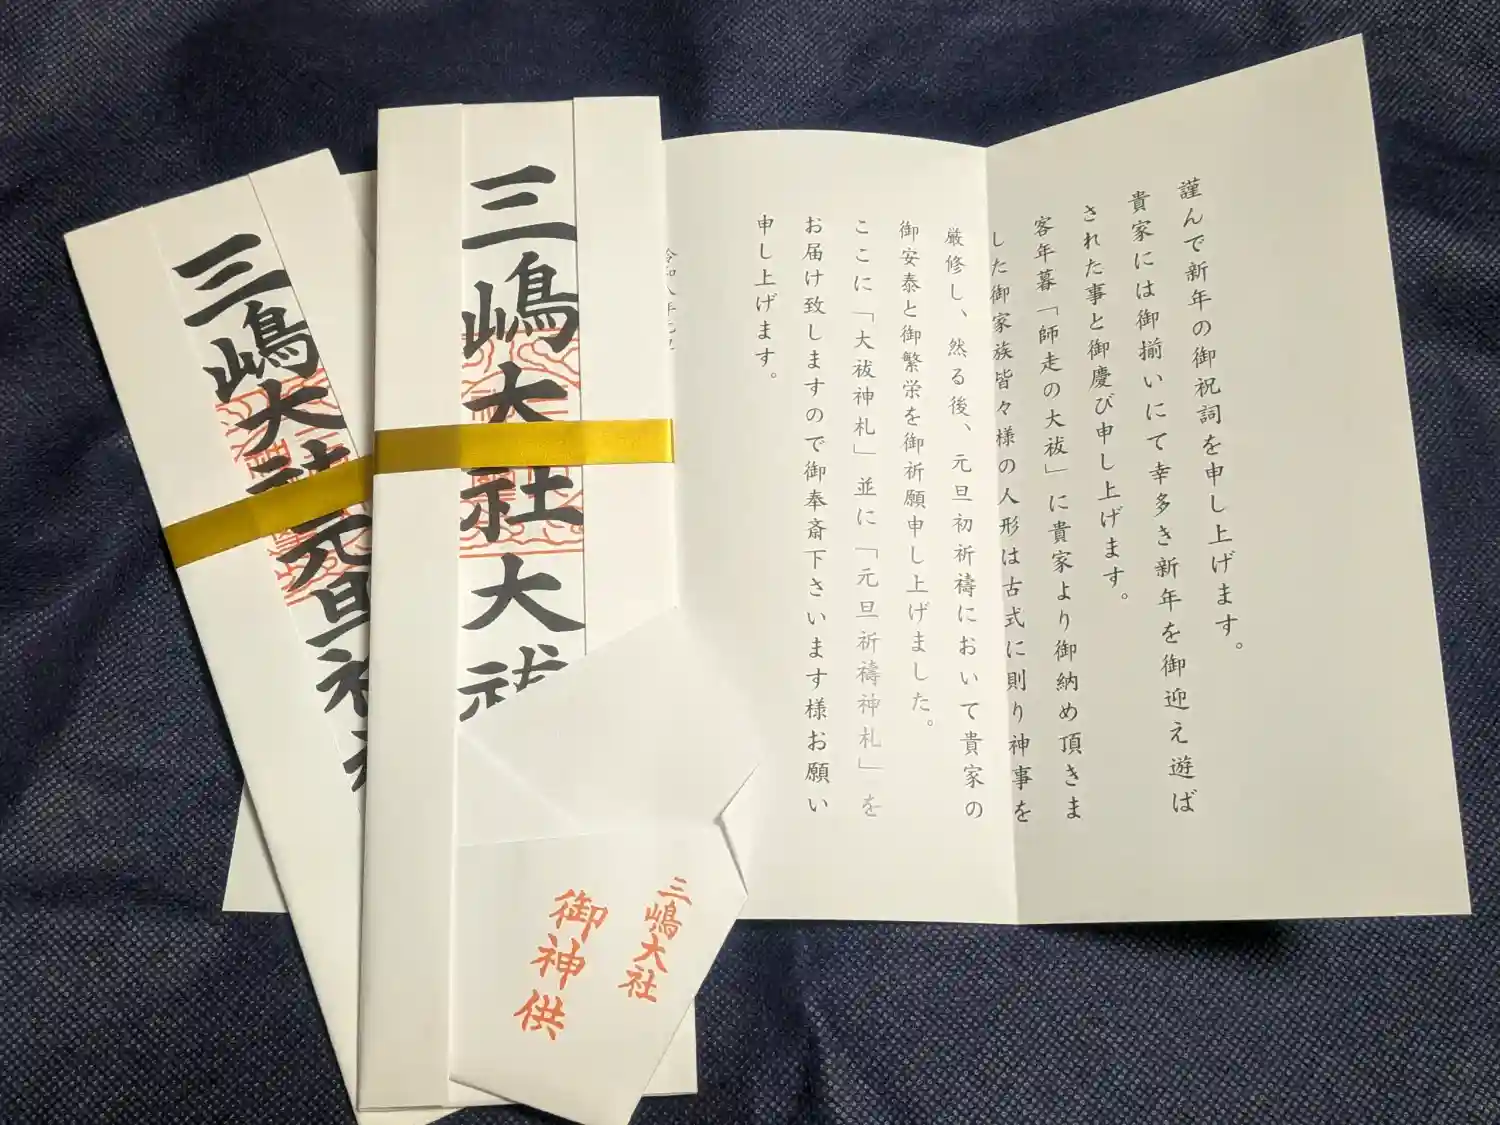 三嶋大社元旦祈
三嶋大社大祓
三嶋大社
御神供
謹んで新年の御祝詞を申し上げます。
貴家には御揃いにて幸多き新年を御迎え遊ば
された事と御慶び申し上げます。
客年暮「師走の大祓」に貴家より御納め頂きま
した御家族皆々様の人形は古式に則り神事を
厳修し、然る後、元旦初祈禱において貴家の
御安泰と御繁栄を御祈願申し上げました。
ここに「大祓神札」並に「元旦祈禱神札」を
お届け致しますので御奉斎下さいます様お願い
申し上げます。